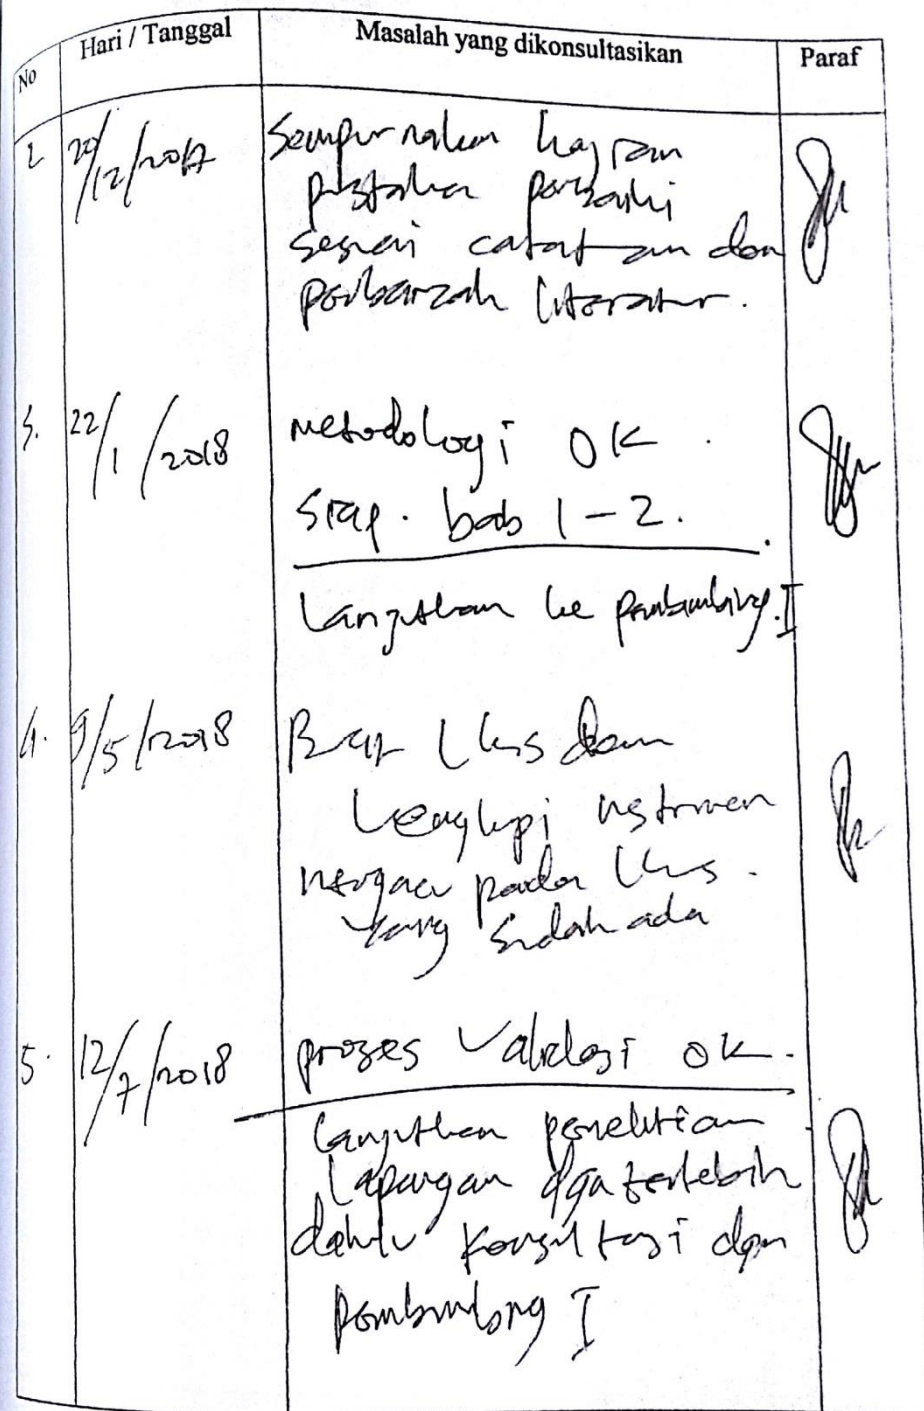 No Hari / Tanggal Masalah yang dikonsultasikan Paraf
2 20/12/2017 Sempurnakan kajian
pustaka perbaiki
sesuai catatan dan
perbanyak literatur.
3. 22/1/2018 metodologi OK.
Siap. bab 1-2.
Lanjutkan ke pembimbing.I
4. 9/5/2018 Buat lks dan
Lengkapi instrumen
pada lks.
yang sudah ada
5. 12/7/2018 proses validasi ok.
Lanjutkan penelitian
Lapangan dgn terlebih
dahulu konsultasi dgn
Pembimbing I